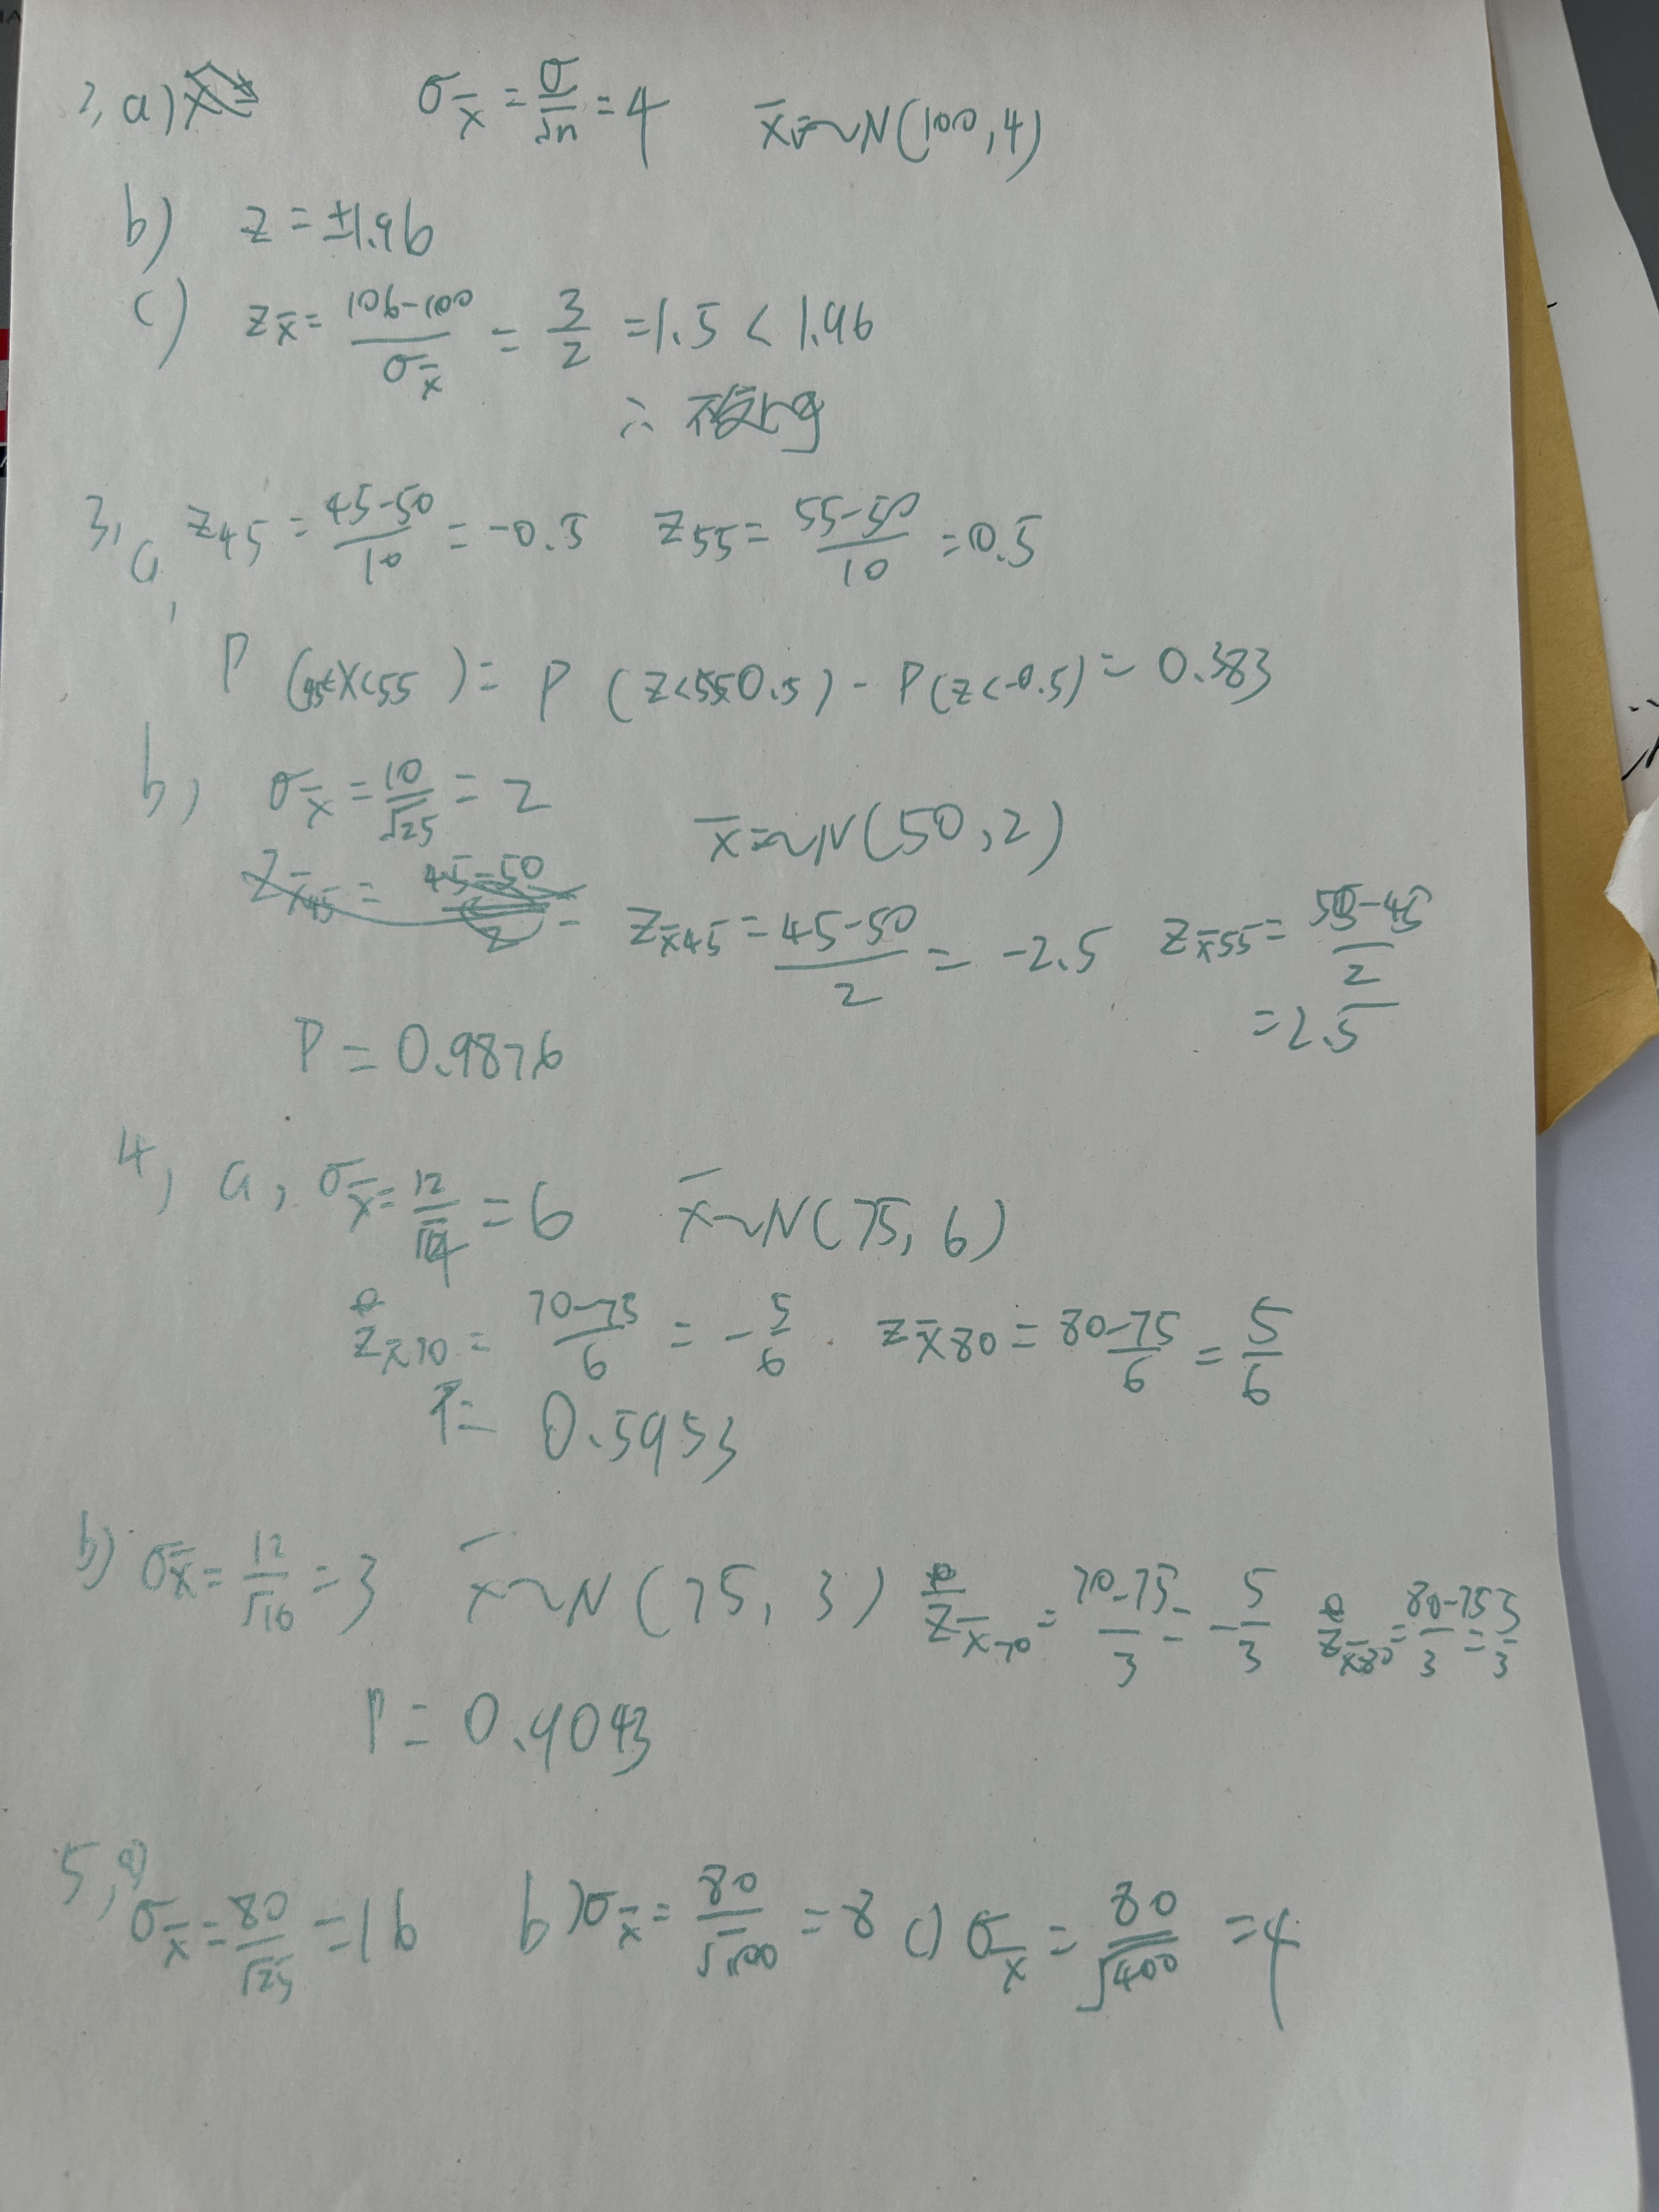 2, a) σx̄ = σ/√n = 4   x̄ = ~N(100, 4)
b) z = ±1.96
c) zx̄ = (106-100)/σx̄ = 3/2 = 1.5 < 1.96
∴
3, a, z45 = (45-50)/10 = -0.5   z55 = (55-50)/10 = 0.5
P (45<X<55) = P (z<0.5) - P(z<-0.5) = 0.383
b, σx̄ = 10/√25 = 2   x̄ = ~N(50, 2)
zx̄45 = (45-50)/2 = -2.5   zx̄55 = (55-45)/2
= 2.5
P = 0.9876
4, a, σx̄ = 12/√4 = 6   x̄~N(75, 6)
zx̄70 = (70-75)/6 = -5/6 . zx̄80 = (80-75)/6 = 5/6
P = 0.5953
b) σx̄ = 12/√16 = 3   x̄~N(75, 3)   zx̄70 = (70-75)/3 = -5/3   zx̄80 = (80-75)/3 = 5/3
P = 0.9043
5, a) σx̄ = 80/√25 = 16   b) σx̄ = 80/√100 = 8   c) σx̄ = 80/√400 = 4